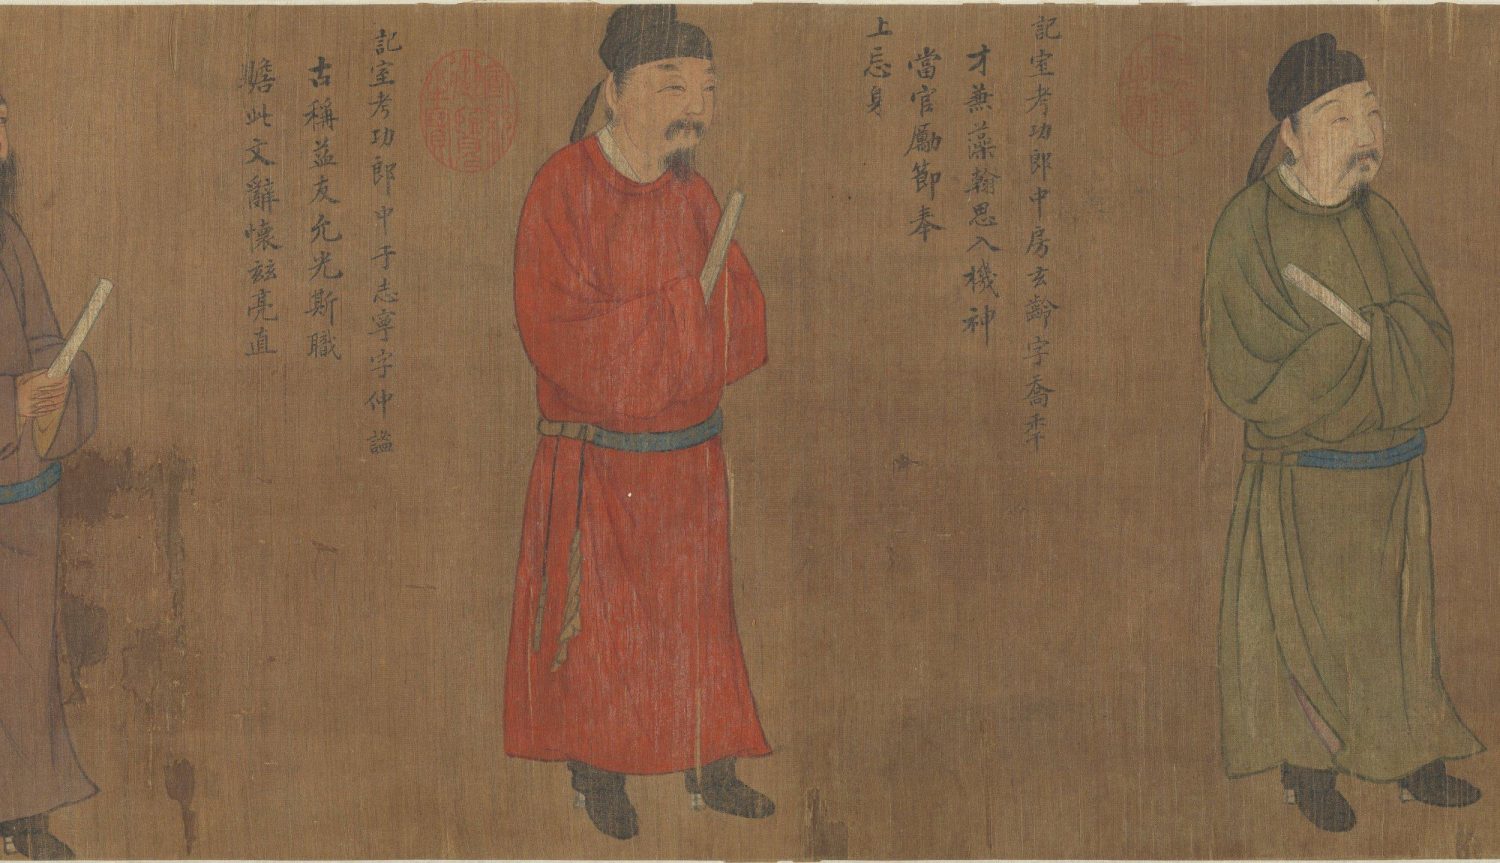 記室考功郎中房玄齡字喬年
才兼藻翰思入機神
當官勵節奉
上忘身
記室考功郎中于志寧字仲謐
古稱益友允光斯職
贍此文辭懷茲亮直